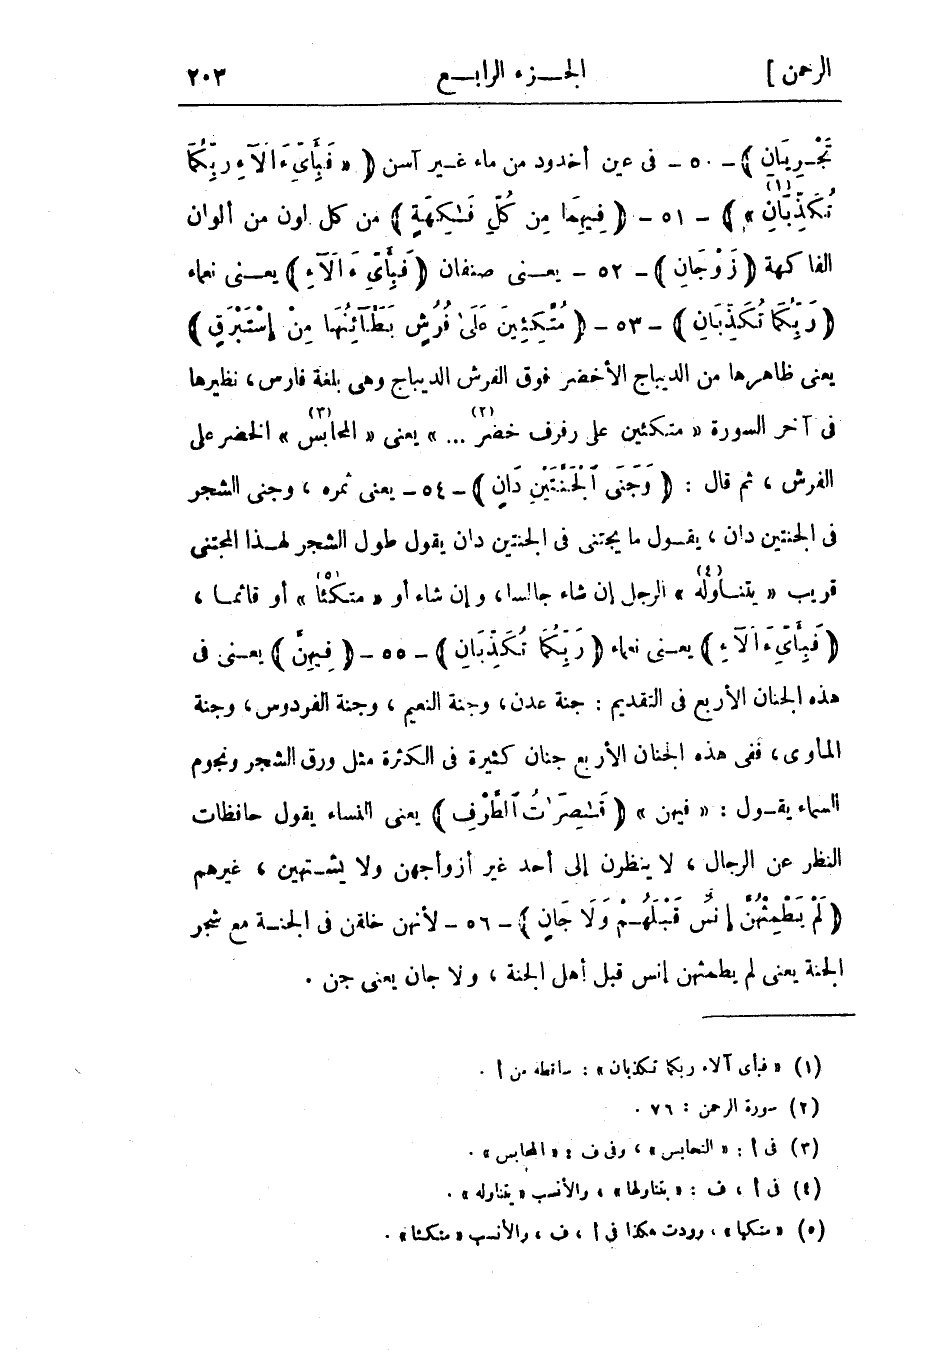 الرحمن ] الجـــزء الرابــع ٢٠٣
تَجْـرِيَانِ ) - ٥٠ - فى عين أخدود من ماء غـير آسن ( « فَبِأَىِّ ءَالَآءِ رَبِّكُمَا
تُكَذِّبَانِ (١) » ) - ٥١ - ( فِيهِمَا مِن كُلِّ فَـٰكِهَةٍ ) من كل لون من ألوان
الفاكهة ( زَوْجَانِ ) - ٥٢ - يعـنى صنفان ( فَبِأَىِّ ءَالَآءِ ) يعـنى نعماء
( رَبِّكُمَا تُكَذِّبَانِ ) - ٥٣ - ( مُتَّكِئِينَ عَلَىٰ فُرُشٍ بَطَآئِنُهَا مِنْ إِسْتَبْرَقٍ )
يعنى ظاهرها من الديباج الأخضر فوق الفرش الديباج وهى بلغة فارس، نظيرها
فى آخر السورة « متكئين على رفرف خضر ... (٢) » يعنى « المحابس (٣) » الخضر على
الفرش ، ثم قال : ( وَجَنَى ٱلْجَنَّتَيْنِ دَانٍ ) - ٥٤ - يعنى ثمره ، وجنى الشجر
فى الجنتين دان ، يقـول ما يجتنى فى الجنتين دان يقول طول الشجر لهـذا المجتنى
قريب « يتنـاوله (٤) » الرجل إن شاء جالسا، وإن شاء أو « متكئا (٥) » أو قائمـا ،
( فَبِأَىِّ ءَالَآءِ ) يعـنى نعماء ( رَبِّكُمَا تُكَذِّبَانِ ) - ٥٥ - ( فِيهِنَّ ) يعـنى فى
هذه الجنان الأربع فى التقديم : جنة عدن، وجنة النعيم ، وجنة الفردوس، وجنة
المأوى، ففى هذه الجنان الأربع جنان كثيرة فى الكثرة مثل ورق الشجر ونجوم
السماء يقـول : « فيهن » ( قَـٰصِرَٰتُ ٱلطَّرْفِ ) يعنى النساء يقول حافظات
النظر عن الرجال ، لا ينظرون إلى أحد غير أزواجهن ولا يشـتهين ، غيرهم
( لَمْ يَطْمِثْهُنَّ إِنسٌ قَبْلَهُـمْ وَلَا جَانٌ ) - ٥٦ - لأنهن خلقن فى الجنـة مع شجر
الجنة يعنى لم يطمثهن إنس قبل أهل الجنة ، ولا جان يعنى جن .
(١) « فبأى آلاء ربكما تكذبان » : ساقطة من أ .
(٢) سورة الرحمن : ٧٦ .
(٣) فى أ : « النحابس » ، وفى ف : « المحابس » .
(٤) فى أ ، ف : « يتناولها » ، والأنسب « يتناوله » .
(٥) « متكيا » ، وردت هكذا فى أ ، ف ، والأنسب « متكئا » .